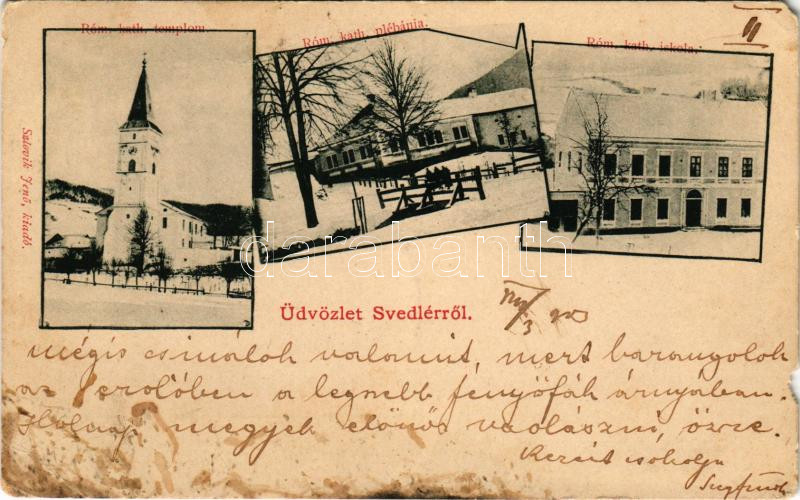 Róm. kath. templom.
Róm. kath. plébánia.
Róm. kath. iskola.
Salovik Jenő, kiadó.
darabanth
Üdvözlet Svedlérről.
mégis csinálok valamit, mert barangolok
az erdőben a legszebb fenyőfák árnyában.
Holnap megyek vadászni, őzre.
Kezeit csókolja